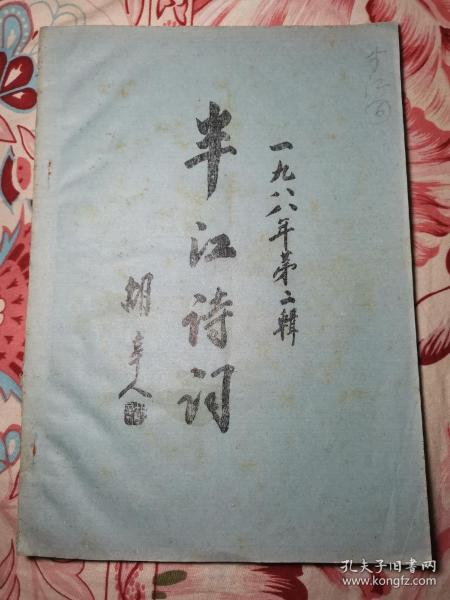 一九八八年第二辑
半江诗词
胡辛人
孔夫子旧书网
www.kongfz.com